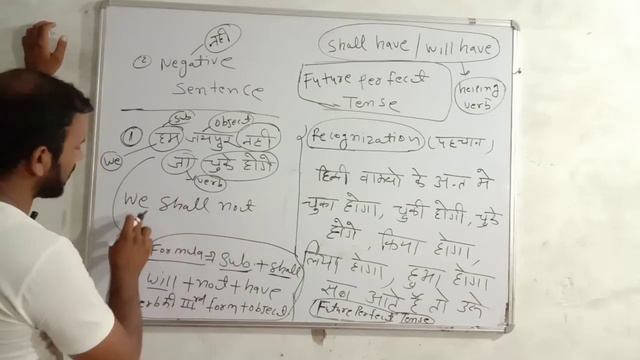 नही
② Negative
Sentence
Sub
object
① हम जयपुर नही
we
जा चुके होगे
verb
We shall not
Formula ⇒ Sub + shall
will + not + have
verb की IIIrd form + object
Shall have / will have
Future perfect
Tense
helping
verb
Recognization (पहचान)
हिन्दी वाक्यो के अन्त मे
चुका होगा, चुकी होगी, चुके
होगे, किया होगा,
लिया होगा, हुआ होगा
आते है तो उसे
Future Perfect Tense